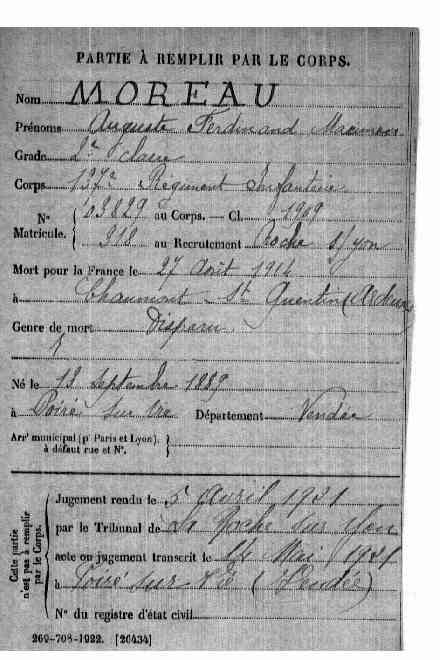 PARTIE À REMPLIR PAR LE CORPS.
Nom MOREAU
Prénoms Auguste Ferdinand
Grade 2e classe
Corps 137e Régiment Infanterie
N° Matricule. { 03829 au Corps. — Cl. 1909
318 au Recrutement Roche s/yon
Mort pour la France le 27 Août 1914
à Chaumont St Quentin (Ardennes)
Genre de mort Disparu
Né le 18 septembre 1889
à Poiré sur Vie Département Vendée
Arrt municipal (pr Paris et Lyon), }
à défaut rue et N°.
Cette partie n'est pas à remplir par le Corps.
Jugement rendu le 5 Avril 1921
par le Tribunal de La Roche sur Yon
acte ou jugement transcrit le 14 Mai 1921
à Poiré sur Vie (Vendée)
N° du registre d'état civil
269-708-1922. [26434]